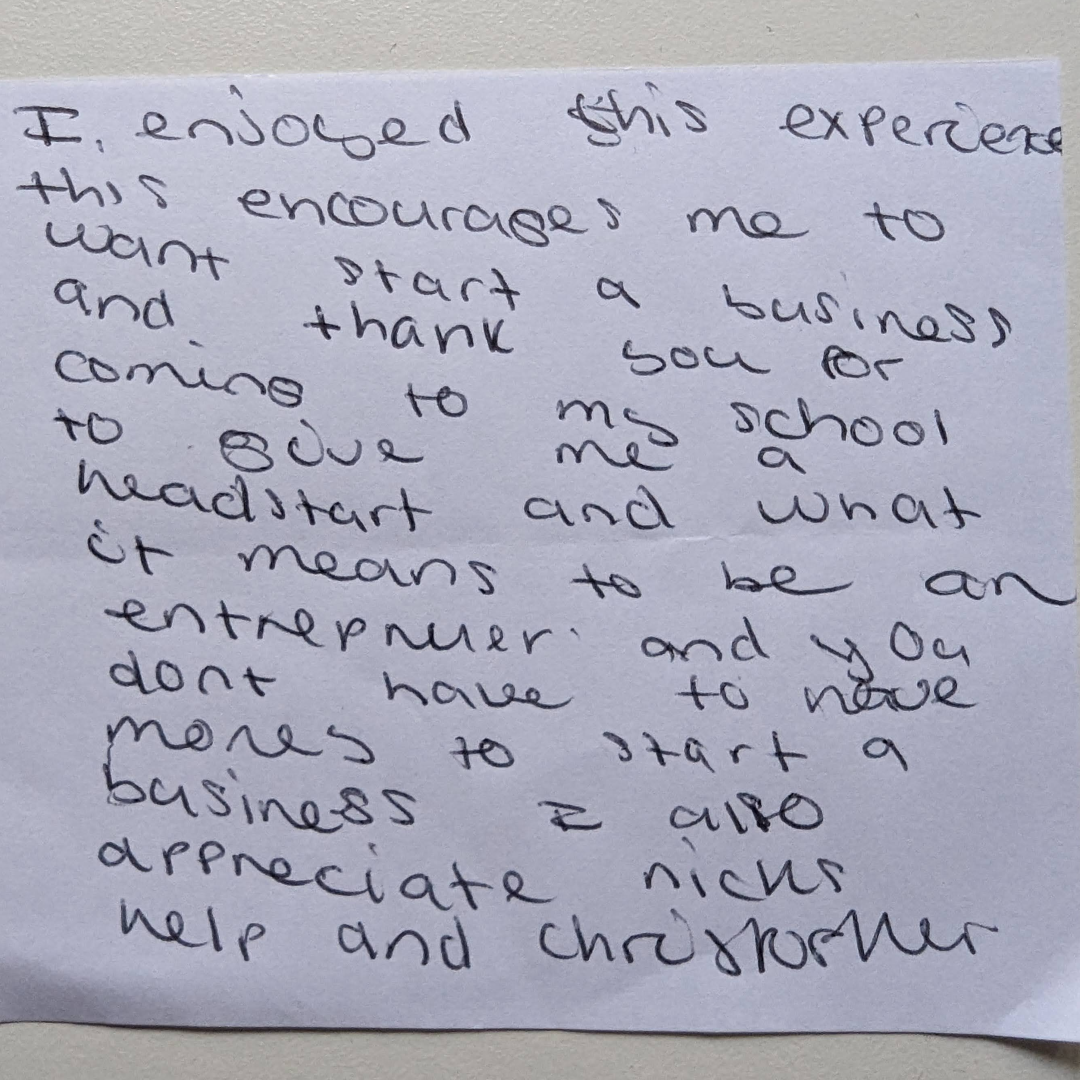 I. enjoyed this experience
this encourages me to
want start a business
and thank you for
coming to my school
to give me a
headstart and what
it means to be an
entrepnuer. and you
dont have to have
money to start a
business I also
appreciate nicks
help and christopher